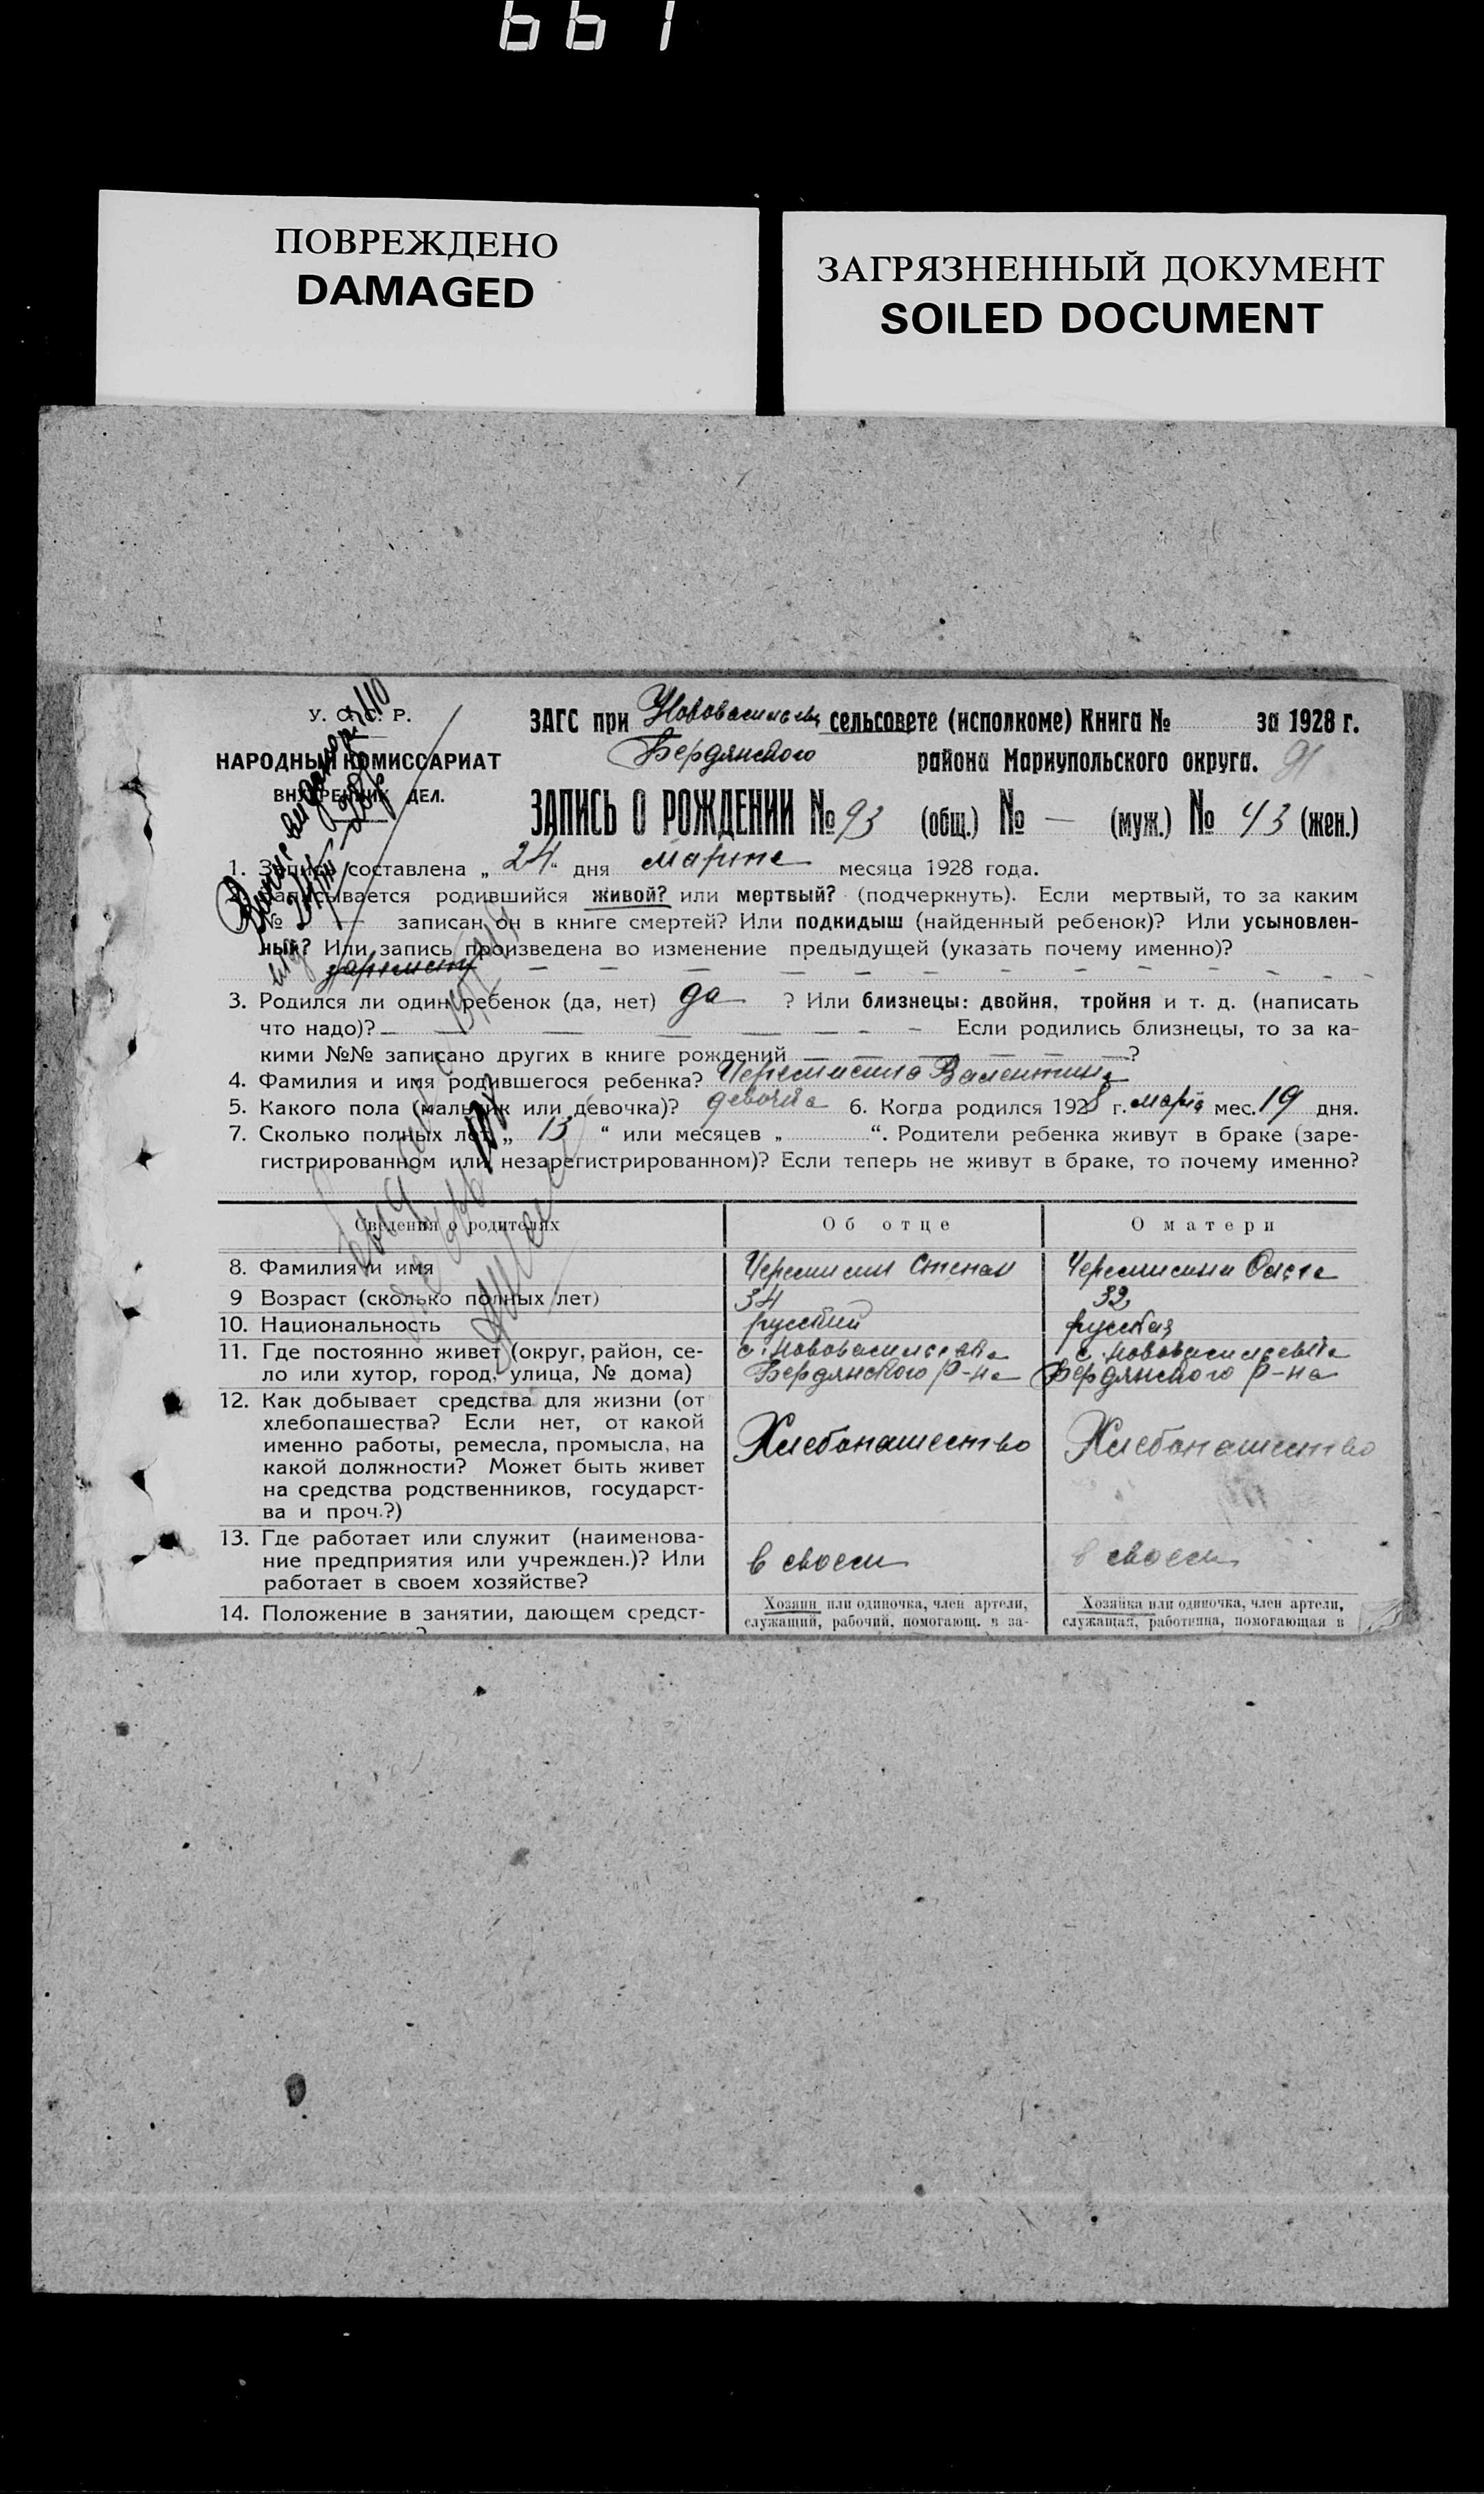 661
ПОВРЕЖДЕНО
DAMAGED
ЗАГРЯЗНЕННЫЙ ДОКУМЕНТ
SOILED DOCUMENT
У. С. С. Р.
НАРОДНЫЙ КОМИССАРИАТ
ВНУТРЕННИХ ДЕЛ.
ЗАГС при Нововасильев сельсовете (исполкоме) Книга № за 1928 г.
Бердянского района Мариупольского округа. 91
ЗАПИСЬ О РОЖДЕНИИ № 93 (общ.) № — (муж.) № 43 (жен.)
1. Запись составлена „ 24 “ дня марта месяца 1928 года.
2. Записывается родившийся живой? или мертвый? (подчеркнуть). Если мертвый, то за каким
№ — записан он в книге смертей? Или подкидыш (найденный ребенок)? Или усыновлен-
ный? Или запись произведена во изменение предыдущей (указать почему именно)?
3. Родился ли один ребенок (да, нет) да ? Или близнецы: двойня, тройня и т. д. (написать
что надо)? — Если родились близнецы, то за ка-
кими №№ записано других в книге рождений — ?
4. Фамилия и имя родившегося ребенка? Черемисина Валентина
5. Какого пола (мальчик или девочка)? девочка 6. Когда родился 1928 г. марта мес. 19 дня.
7. Сколько полных лет „ 13 “ или месяцев „ “. Родители ребенка живут в браке (заре-
гистрированном или незарегистрированном)? Если теперь не живут в браке, то почему именно?
Сведения о родителях Об отце О матери
8. Фамилия и имя Черемисин Степан Черемисина
9 Возраст (сколько полных лет) 34 32
10. Национальность русский русская
11. Где постоянно живет (округ, район, се- с. Нововасильевка с. Нововасильевка
ло или хутор, город, улица, № дома) Бердянского р-на Бердянского р-на
12. Как добывает средства для жизни (от
хлебопашества? Если нет, от какой
именно работы, ремесла, промысла, на Хлебопашество Хлебопашество
какой должности? Может быть живет
на средства родственников, государст-
ва и проч.?)
13. Где работает или служит (наименова-
ние предприятия или учрежден.)? Или в своем в своем
работает в своем хозяйстве?
14. Положение в занятии, дающем средст-
Хозяин или одиночка, член артели,
служащий, рабочий, помогающ. в за-
Хозяйка или одиночка, член артели,
служащая, работница, помогающая в